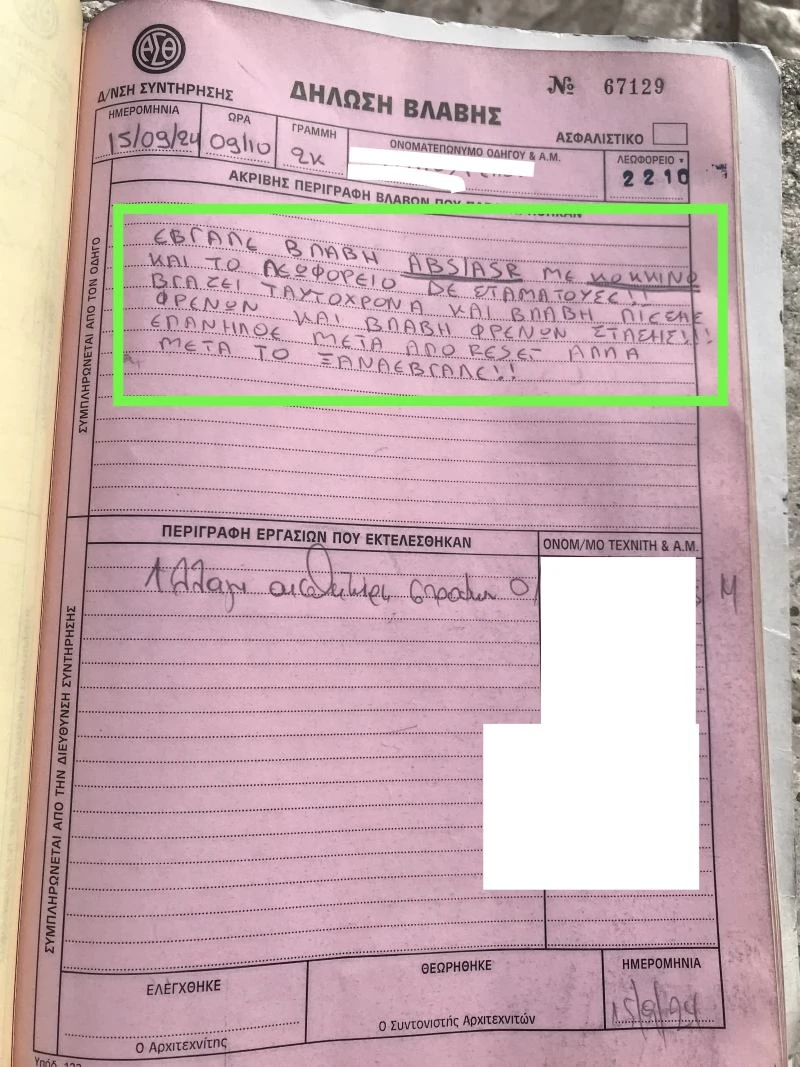 ΑΣΘ
Δ/ΝΣΗ ΣΥΝΤΗΡΗΣΗΣ
ΔΗΛΩΣΗ ΒΛΑΒΗΣ
№ 67129
ΑΣΦΑΛΙΣΤΙΚΟ
ΗΜΕΡΟΜΗΝΙΑ
15/09/24
ΩΡΑ
09/10
ΓΡΑΜΜΗ
2Κ
ΟΝΟΜΑΤΕΠΩΝΥΜΟ ΟΔΗΓΟΥ & Α.Μ.
ΛΕΩΦΟΡΕΙΟ
2210
ΑΚΡΙΒΗΣ ΠΕΡΙΓΡΑΦΗ ΒΛΑΒΩΝ ΠΟΥ
ΣΥΜΠΛΗΡΩΝΕΤΑΙ ΑΠΟ ΤΟΝ ΟΔΗΓΟ
ΕΒΓΑΛΕ ΒΛΑΒΗ ABS/ASR ΜΕ ΚΟΚΚΙΝΟ
ΚΑΙ ΤΟ ΛΕΩΦΟΡΕΙΟ ΔΕ ΣΤΑΜΑΤΟΥΣΕ!!
ΒΓΑΖΕΙ ΤΑΥΤΟΧΡΟΝΑ ΚΑΙ ΒΛΑΒΗ ΠΙΕΣΗΣ
ΦΡΕΝΩΝ ΚΑΙ ΒΛΑΒΗ ΦΡΕΝΩΝ ΣΤΑΣΗΣ!!!
ΕΠΑΝΗΛΘΕ ΜΕΤΑ ΑΠΟ RESET ΑΛΛΑ
ΜΕΤΑ ΤΟ ΞΑΝΑΕΒΓΑΛΕ!!
ΠΕΡΙΓΡΑΦΗ ΕΡΓΑΣΙΩΝ ΠΟΥ ΕΚΤΕΛΕΣΘΗΚΑΝ
ΟΝΟΜ/ΜΟ ΤΕΧΝΙΤΗ & Α.Μ.
Αλλαγη
ΣΥΜΠΛΗΡΩΝΕΤΑΙ ΑΠΟ ΤΗΝ ΔΙΕΥΘΥΝΣΗ ΣΥΝΤΗΡΗΣΗΣ
ΕΛΕΓΧΘΗΚΕ
Ο Αρχιτεχνίτης
ΘΕΩΡΗΘΗΚΕ
Ο Συντονιστής Αρχιτεχνιτών
ΗΜΕΡΟΜΗΝΙΑ
15/9/24